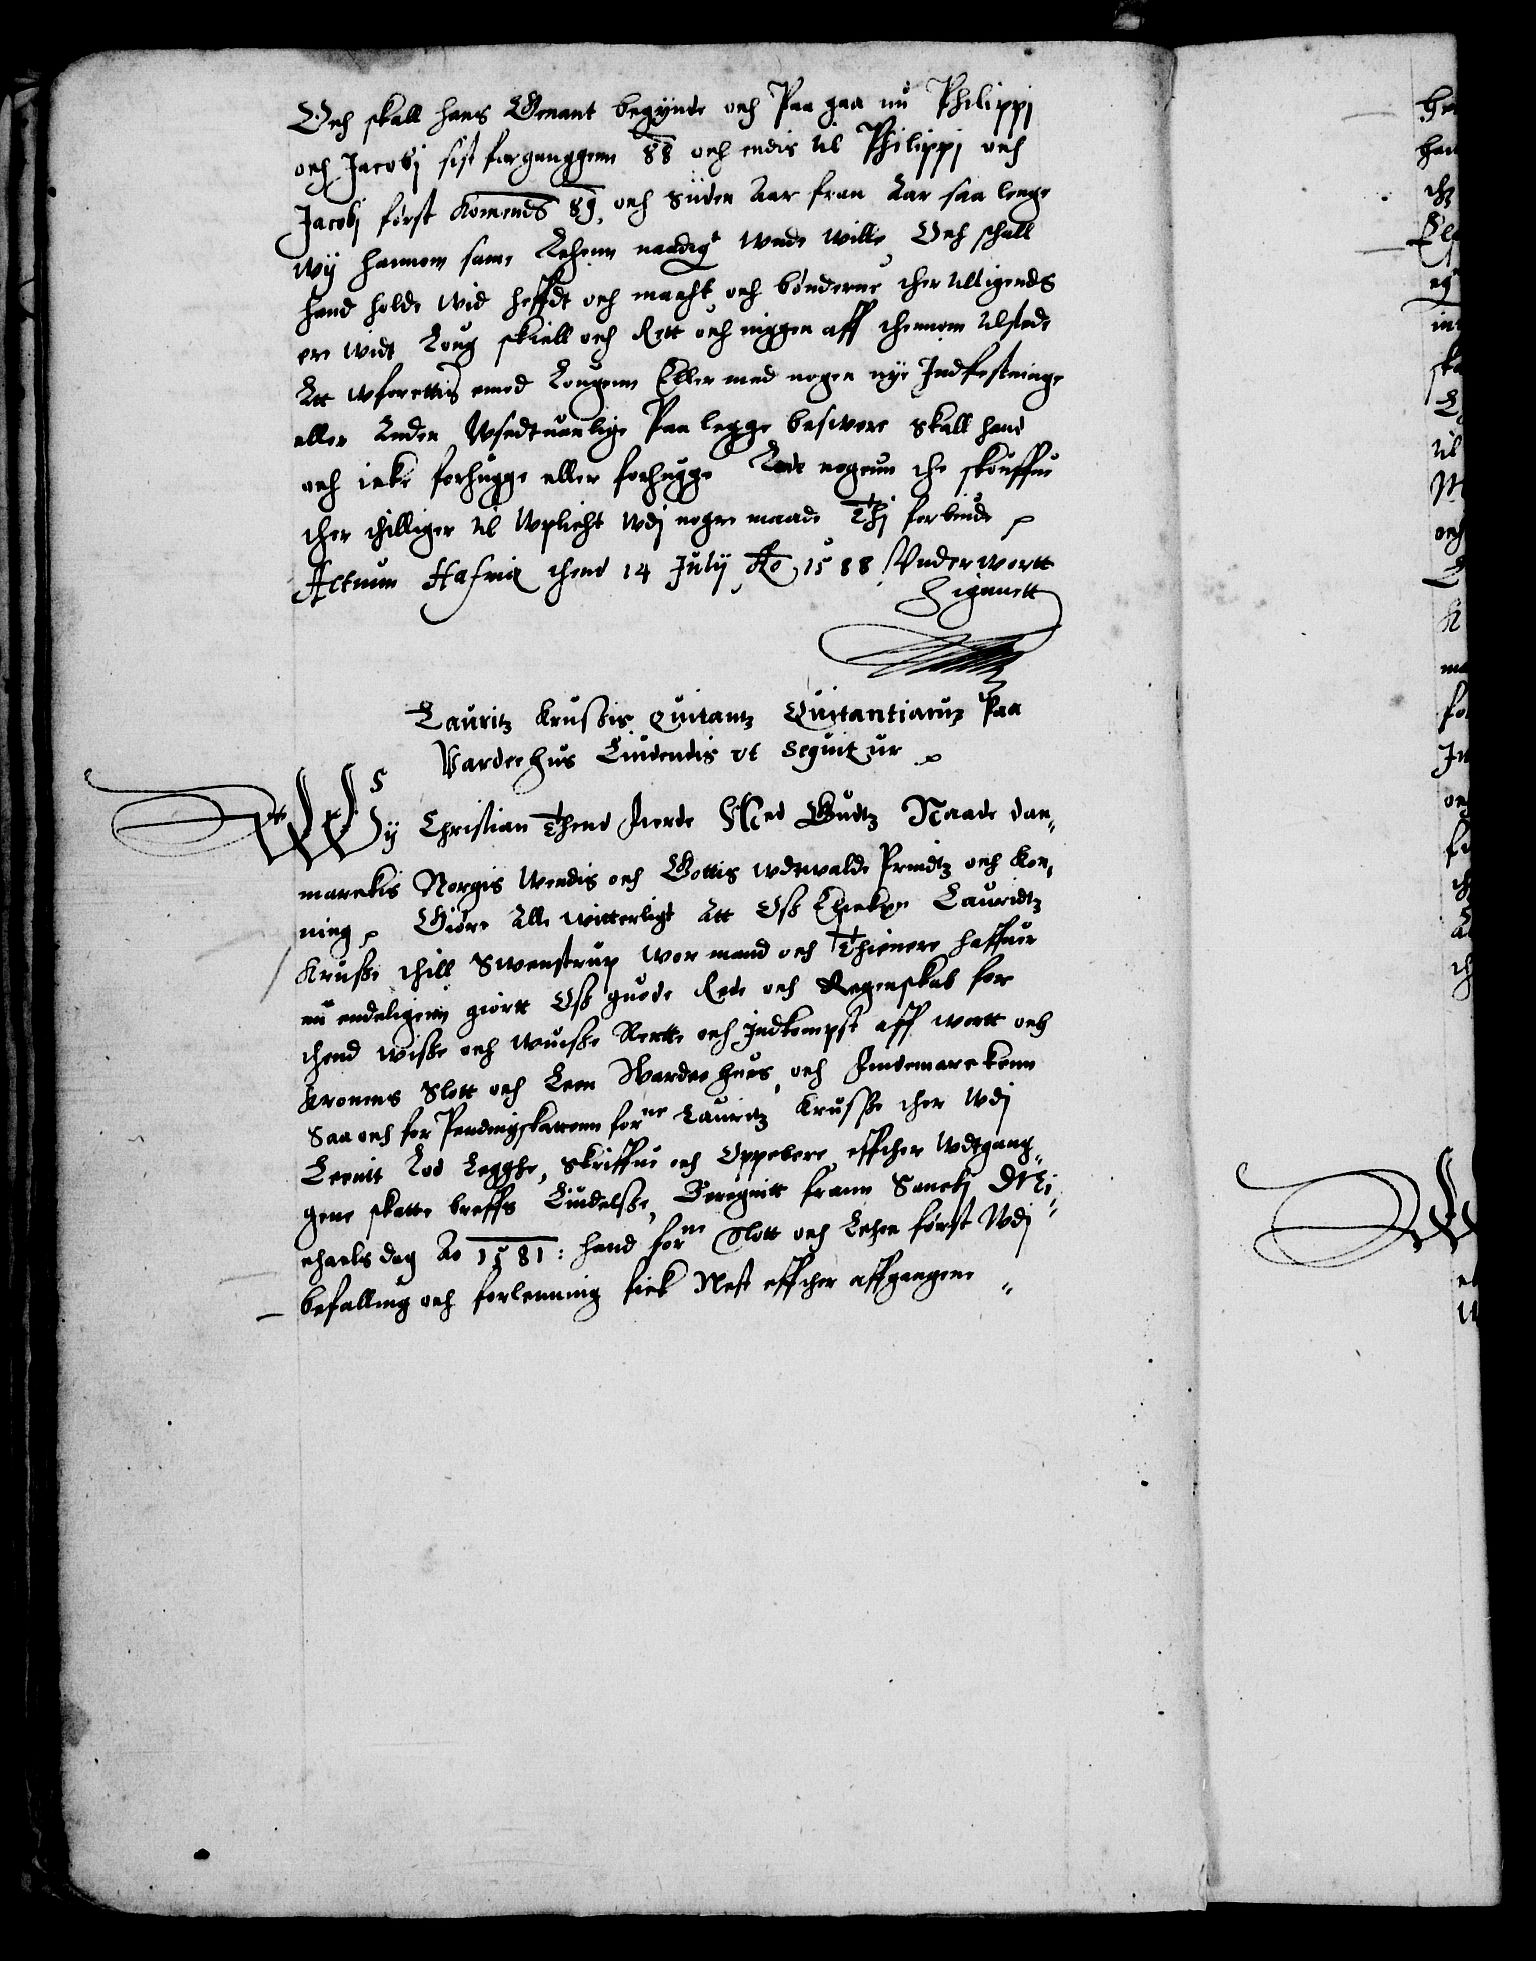 Och skall hans Genant begynde och Paa gaa nu Philippi
och Jacobj sist forganggenn 88 och endis til Philippi och
Jacobj først Komends 89, och Siiden Aar fran Aar saa lenge
wij hannom same Lehenn naadigt wnde wille, Och schall
hand holde wid heffdt och macht och bønderne ther tilligends
ere widt Loug skiell och Rett och inggen aff thennom tilstede
Att wforettis emod Lougenn Eller med nogen nye Indfestninge
eller Anden Wsedtuanlige Paa legge besuere Skall hand
och icke forhugge eller forhugge Lade nogenn the skouffue
ther thilliger til Wplicht Wdj nogre maade Thj forbinde
Actum Hafniæ thend 14 Julij Ao 1588 Vnder wortt
Zignett
Lauritz Krussis Quitantz Quitantiarum Paa
Vardeehus Liudendis vt Seguitur
Wy Christian Thend Fierde Med Gudtz Naade dan-
marckis Norgis Wendis och Gottis wdtwalde Prindtz och Kon-
ning Giøre Alle witterligt Att Oss Elskelige Lauridtz
Krusse thill Swenstrup wor mand och Thienere haffuer
nu endeligenn giortt Oss guode Rede och Regenskab for
thend wisse och wuisse Rentte och Indkompst aff wortt och
Kronens Slott och Leen Wardeehuus, och Findemarckenn
Saa och for Pendingskattenn forne Lauritz Krusse ther Wdj
Leenit Lod Legghe, Skriffue och Oppebere effther Wdtgang-
gene skatte breffs Liudelsse, Beregnitt frann Sanctj Mi-
chaels dag Ao 1581: hand forne Slott och Lehen først Wdj
befalling och forlenning fick Nest effther affgangene